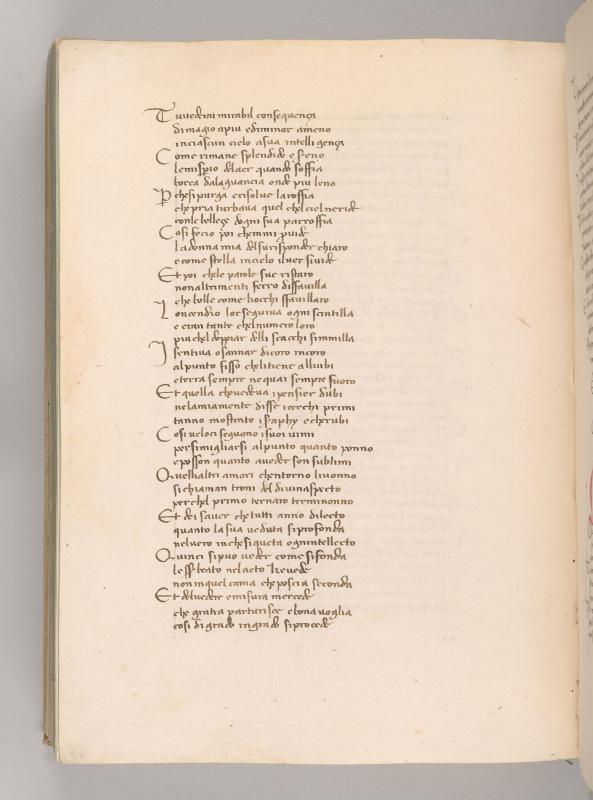 Tu vederai mirabil consequença
di magio apiu edi minor ameno
inciascun cielo asua intelligença
Come rimane splendido e sereno
lemisperio delaer quando soffia
borea dalaguancia onde piu leno
Perchesi purga erisolue la roffia
che pria turbaua quel chel ciel neride
conle bellege dogni sua parroffia
Cosi fecio poi chemmi prouide
ladonna mia delsuo risponder chiaro
e come stella incielo iluer siuide
Et poi chele parole sue ristaro
non altrimenti ferro disfauilla
che bolle come licerchi sfauillaro
Loncendio lor seguiua ogni scintilla
e eran tante chel numero loro
piu chel doppiar delli scacchi simmilla
I sentiua osannar dicoro incoro
alpunto fisso cheli tiene alliubi
e terra sempre nequai sempre fuoro
Et quella cheuedeua ipensier dubi
nelamia mente disse icerchi primi
tanno mostrato iseraphy e cherubi
Cosi veloci seguono isuoi uimi
per simigliarsi alpunto quanto ponno
e posson quanto aueder son sublimi
Quellialtri amori chentorno liuonno
si chiaman troni del diuin aspecto
perchel primo ternaro terminonno
Et dei sauer che tutti anno dilecto
quanto la sua veduta siprofonda
neluero inchesi queta ogni intellecto
Quinci sipuo veder come sifonda
lesser beato nelacto che vede
non inquel cama che poscia seconda
Et deluedere e misura mercede
che gratia parturisce e bona voglia
cosi di grado ingrado siprocede